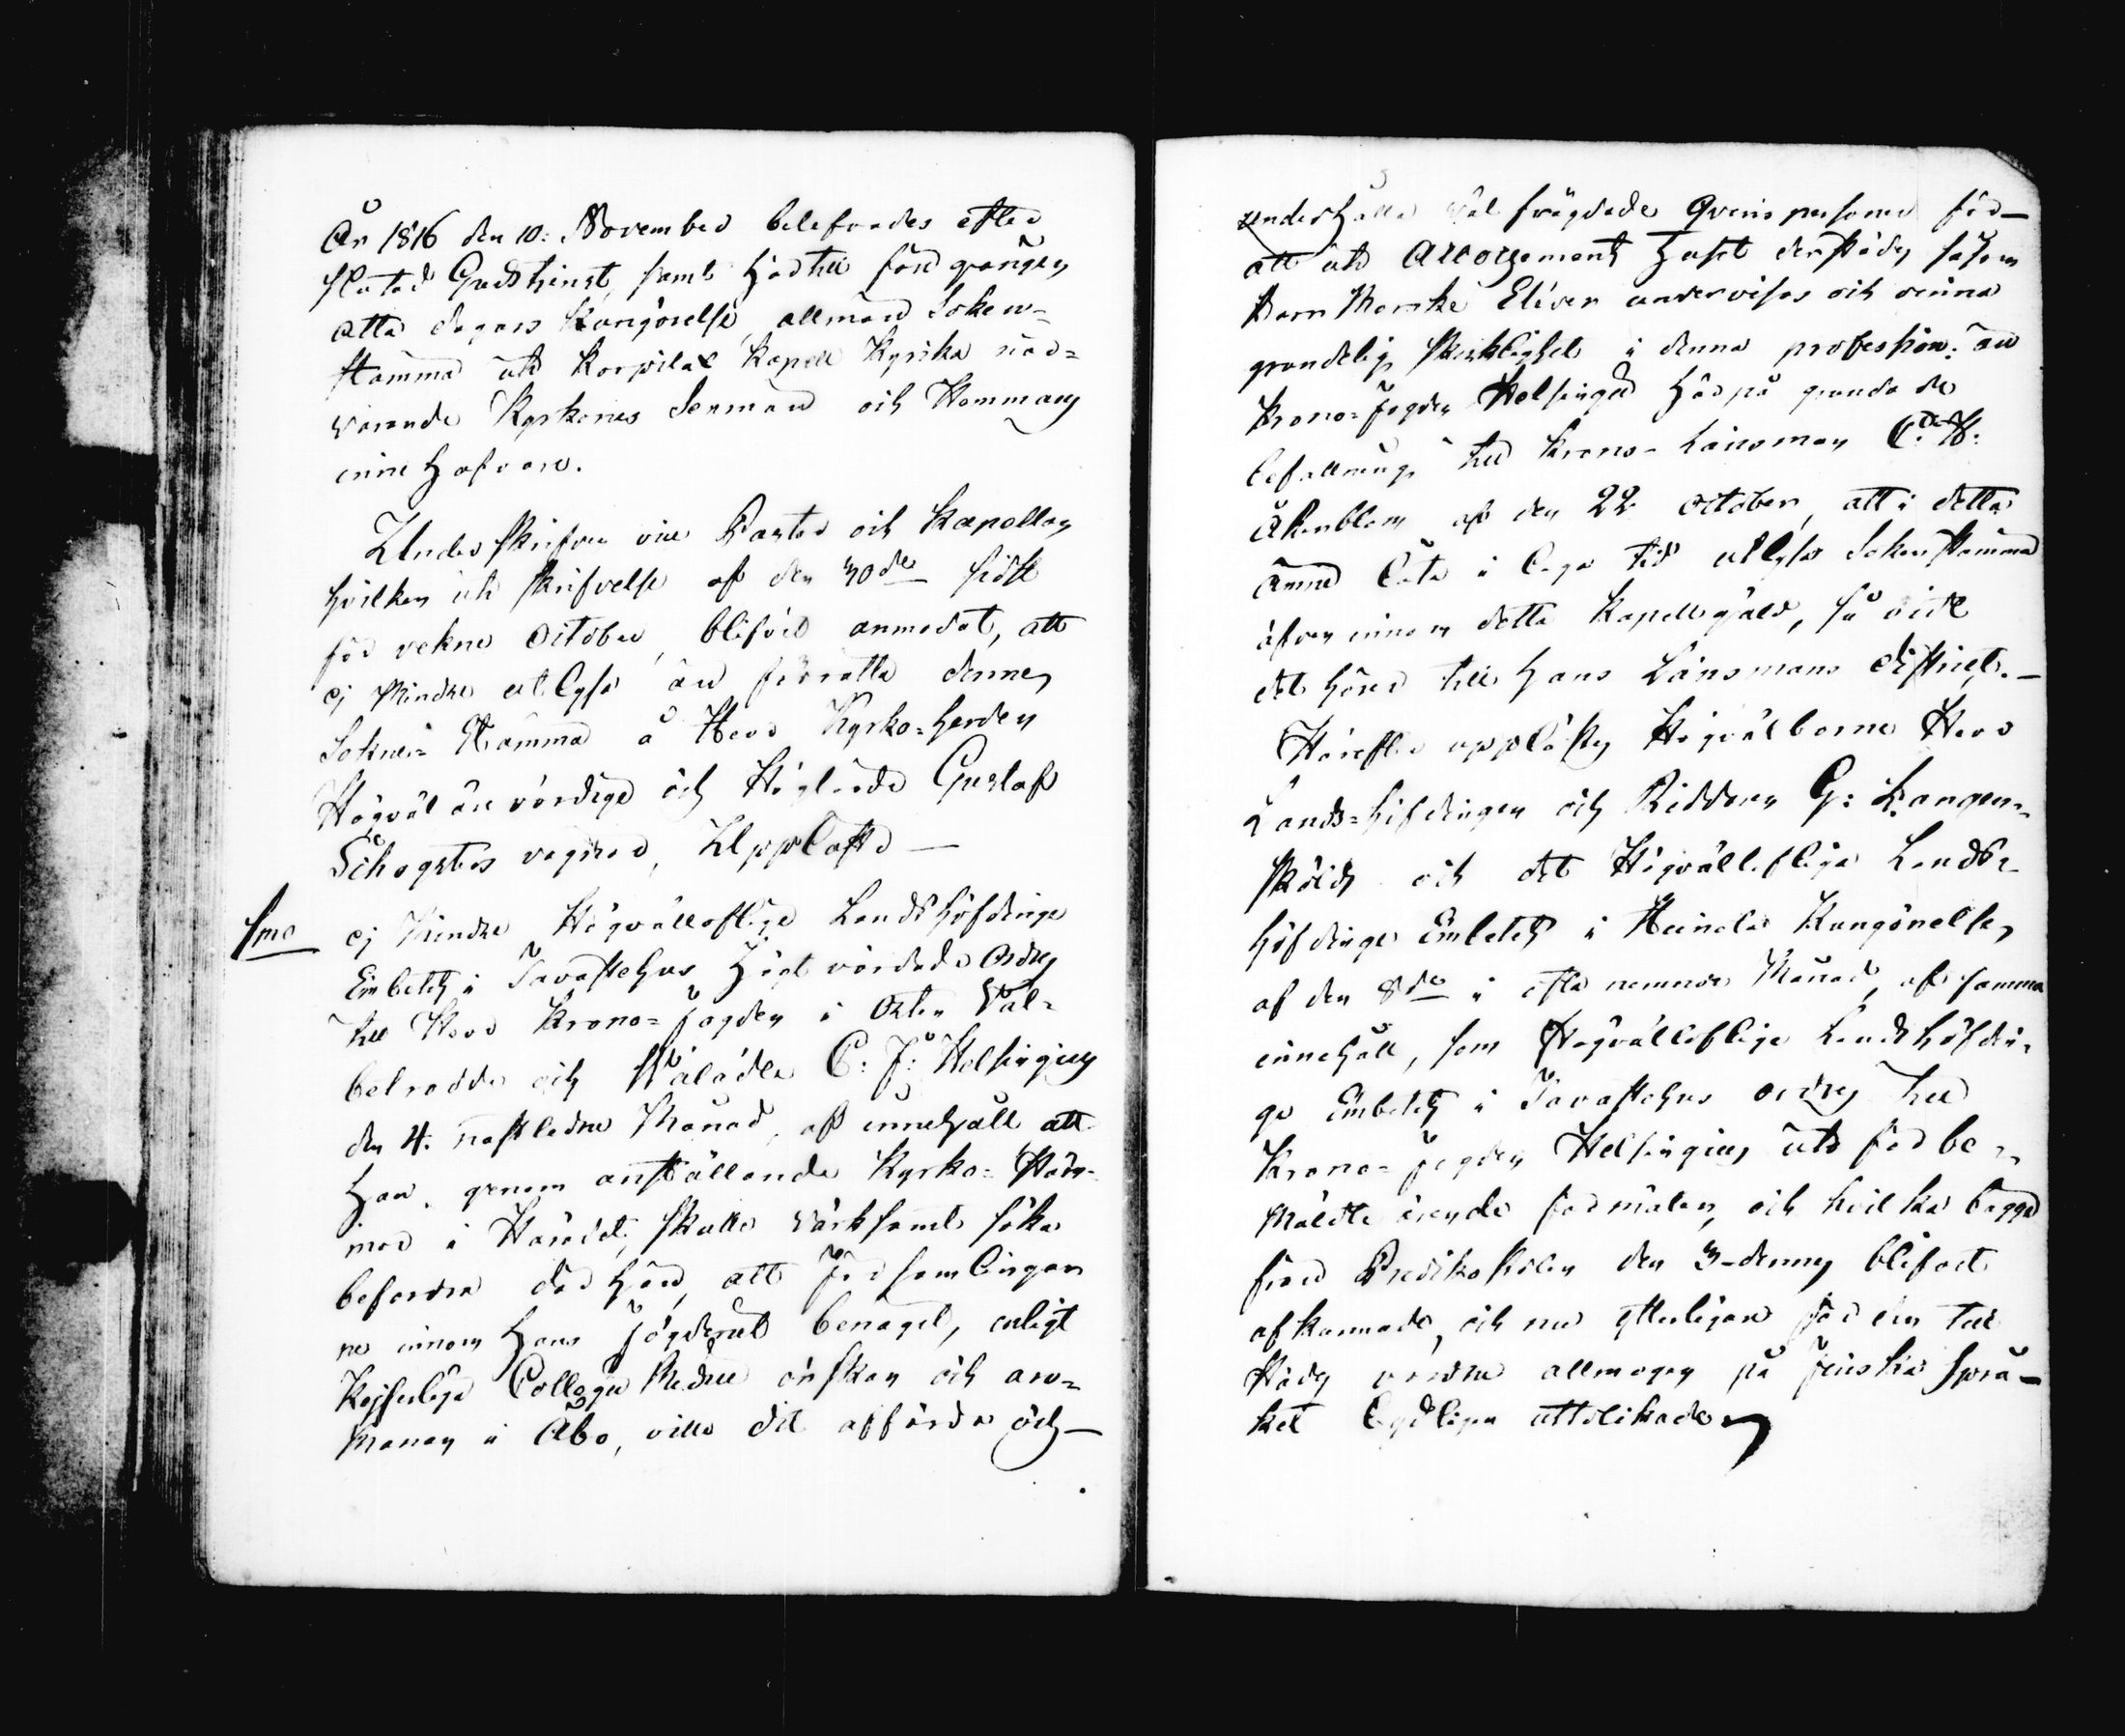 År 1816 den 10: November belefvades efter
slutad Gudstienst, samt härtill föregången
åtta dagars kungörelse, allmän Sokne-
stämma uti Korpilax Kapell Kyrka när-
varande Kyrkones Sexmän och Hemmans
innehafvare.
Underskrifven vice Pastor och Kapellan
hvilken uti skrifvelse af den 30de sidst
för vekne October, blifvit anmodat, att
ej mindre utlysa än förrätta denne
Sokne-Stämma å Herr Kyrko-herden
Högväl ärevördige och Höglärde Gustaf
Schogsters vägnar, Uppläste —
1mo ej mindre Högvälloflige Landshöfdinge
Embetets i Tavastehus Högt vördade Ordres
till Herr Krono-Fogden i Orten Väl-
betrodde och Välädle C: J: Helsingius
den 4. nästledne Månad, af innehåll att
Han, genom anställande Kyrko-Stäm-
mor i Häradet, skulle värksamt söka
befordra därhän, att Församlingar-
ne innom Hans Fögderi benäget, enligt
Kejserliga Collegii Medici önskan och an-
manan i Åbo, ville dit affärda och —
underhålla väl frägdade Qvinspersoner för —
att uti Accouchements Huset derstädes såsom
Barn Morske Eléver undervisas och vinna
grundelig skicklighet i denna profession: än
Krono-Fogden Helsingii härpå grundade
befallning till Krono-Länsman C: H:
Åkerblom af den 22 October, att i detta
ämne låta i laga tid utlysa Sokenstämma
äfven innom detta Kapellgäld, så vidt
det hörer till Hans Länsmans district. —
Härefter upplästes Högvälborne Herr
Lands-höfdingen och Riddaren G: Langen-
skölds och det Högvällofliga Lands-
höfdinge Embetets i Heinola Kungörelse,
af den 8de i ofta nemnde Månad, af samma
innehåll, som Högvällofliga Landshöfdin-
ge Embetets i Tavastehus ordres till
Krono-Fogden Helsingius uti förbe-
mälte ärende förmälen, och hvilka bägge
från Predikostolen den 3-dennes blifvit
afkunnade, och nu ytterligare för den till
städes varande allmogen på Finska språ-
ket tydligen uttolkades